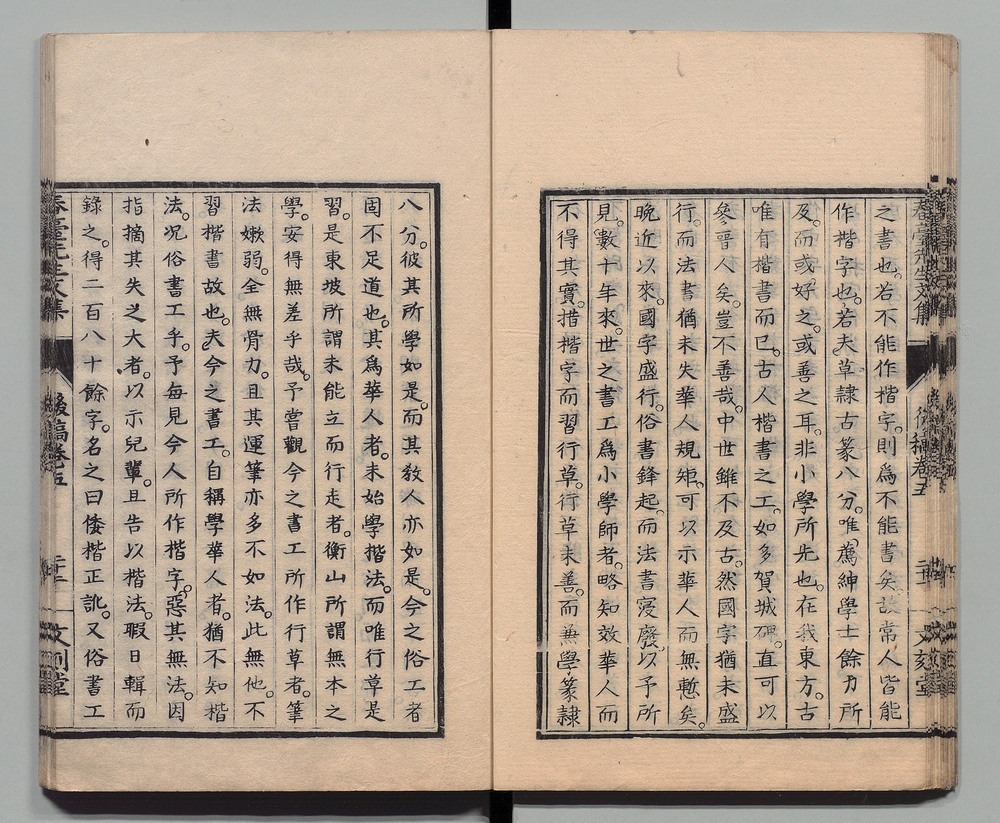 之書也。若不能作楷字。則為不能書矣。故常人皆能
作楷字也。若夫草隷古篆八分。唯薦紳學士餘力所
及。而或好之。或善之耳。非小學所先也。在我東方。古
唯有楷書而已。古人楷書之工。如多賀城碑。直可以
參晉人矣。豈不善哉。中世雖不及古。然國字猶未盛
行。而法書猶未失華人規矩。可以示華人而無慙矣。
晚近以來。國字盛行。俗書鋒起。而法書寖廢。以予所
見。數十年來。世之書工為小學師者。略知效華人而
不得其實。措楷字而習行草。行草未善。而兼學篆隷
八分。彼其所學如是。而其教人亦如是。今之俗工者
固不足道也。其為華人者。未始學楷法。而唯行草是
習。是東坡所謂未能立而行走者。衡山所謂無本之
學。安得無差乎哉。予嘗觀今之書工所作行草者。筆
法嫩弱。全無骨力。且其運筆亦多不如法。此無他。不
習楷書故也。夫今之書工。自稱學華人者。猶不知楷
法。况俗書工乎。予每見今人所作楷字。惡其無法。因
指摘其失之大者。以示兒輩。且告以楷法。暇日輯而
錄之。得二百八十餘字。名之曰倭楷正訛。又俗書工
春臺先生文集
後稿卷五